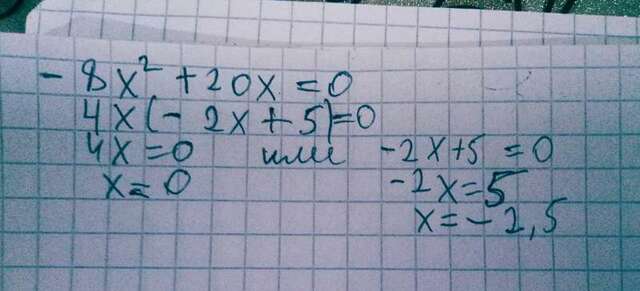 - 8x² + 20x = 0
4x(- 2x + 5) = 0
4x = 0 или -2x+5 = 0
x = 0 -2x = 5
x = - 2,5